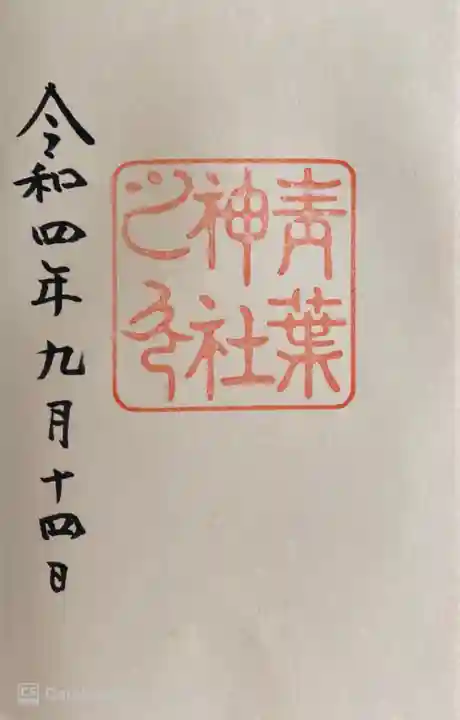 青葉
神社
之印
令和四年九月十四日
CS